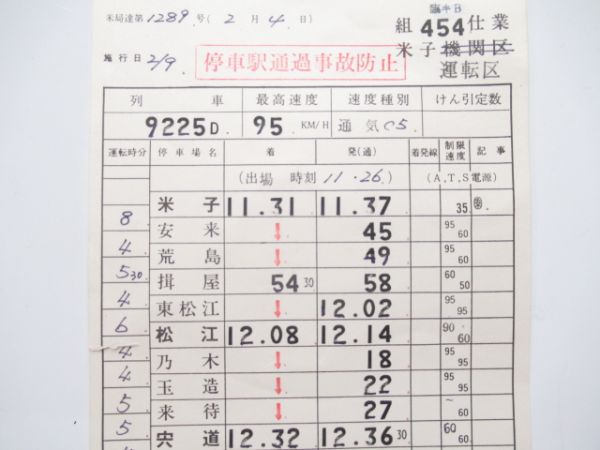 米局達第1289号(2月4日)
臨キB
組454仕業
米子機関区
運転区
施行日 2/9
停車駅通過事故防止
列車 最高速度 速度種別 けん引定数
9225D. 95 KM/H 通気C5
運転時分 停車場名 着 発(通) 着発線 制限速度 記事
(出場 時刻 11.26) (A.T.S電源)
米子 11.31 11.37 35
8 安来 ↓ 45 95 60
4 荒島 ↓ 49 95 60
530 揖屋 54 30 58 60 50
4 東松江 ↓ 12.02 95 95
6 松江 12.08 12.14 90 60
4 乃木 ↓ 18 95 95
4 玉造 ↓ 22 95 95
5 来待 ↓ 27 ~ 60
5 宍道 12.32 12.36 30 60 60